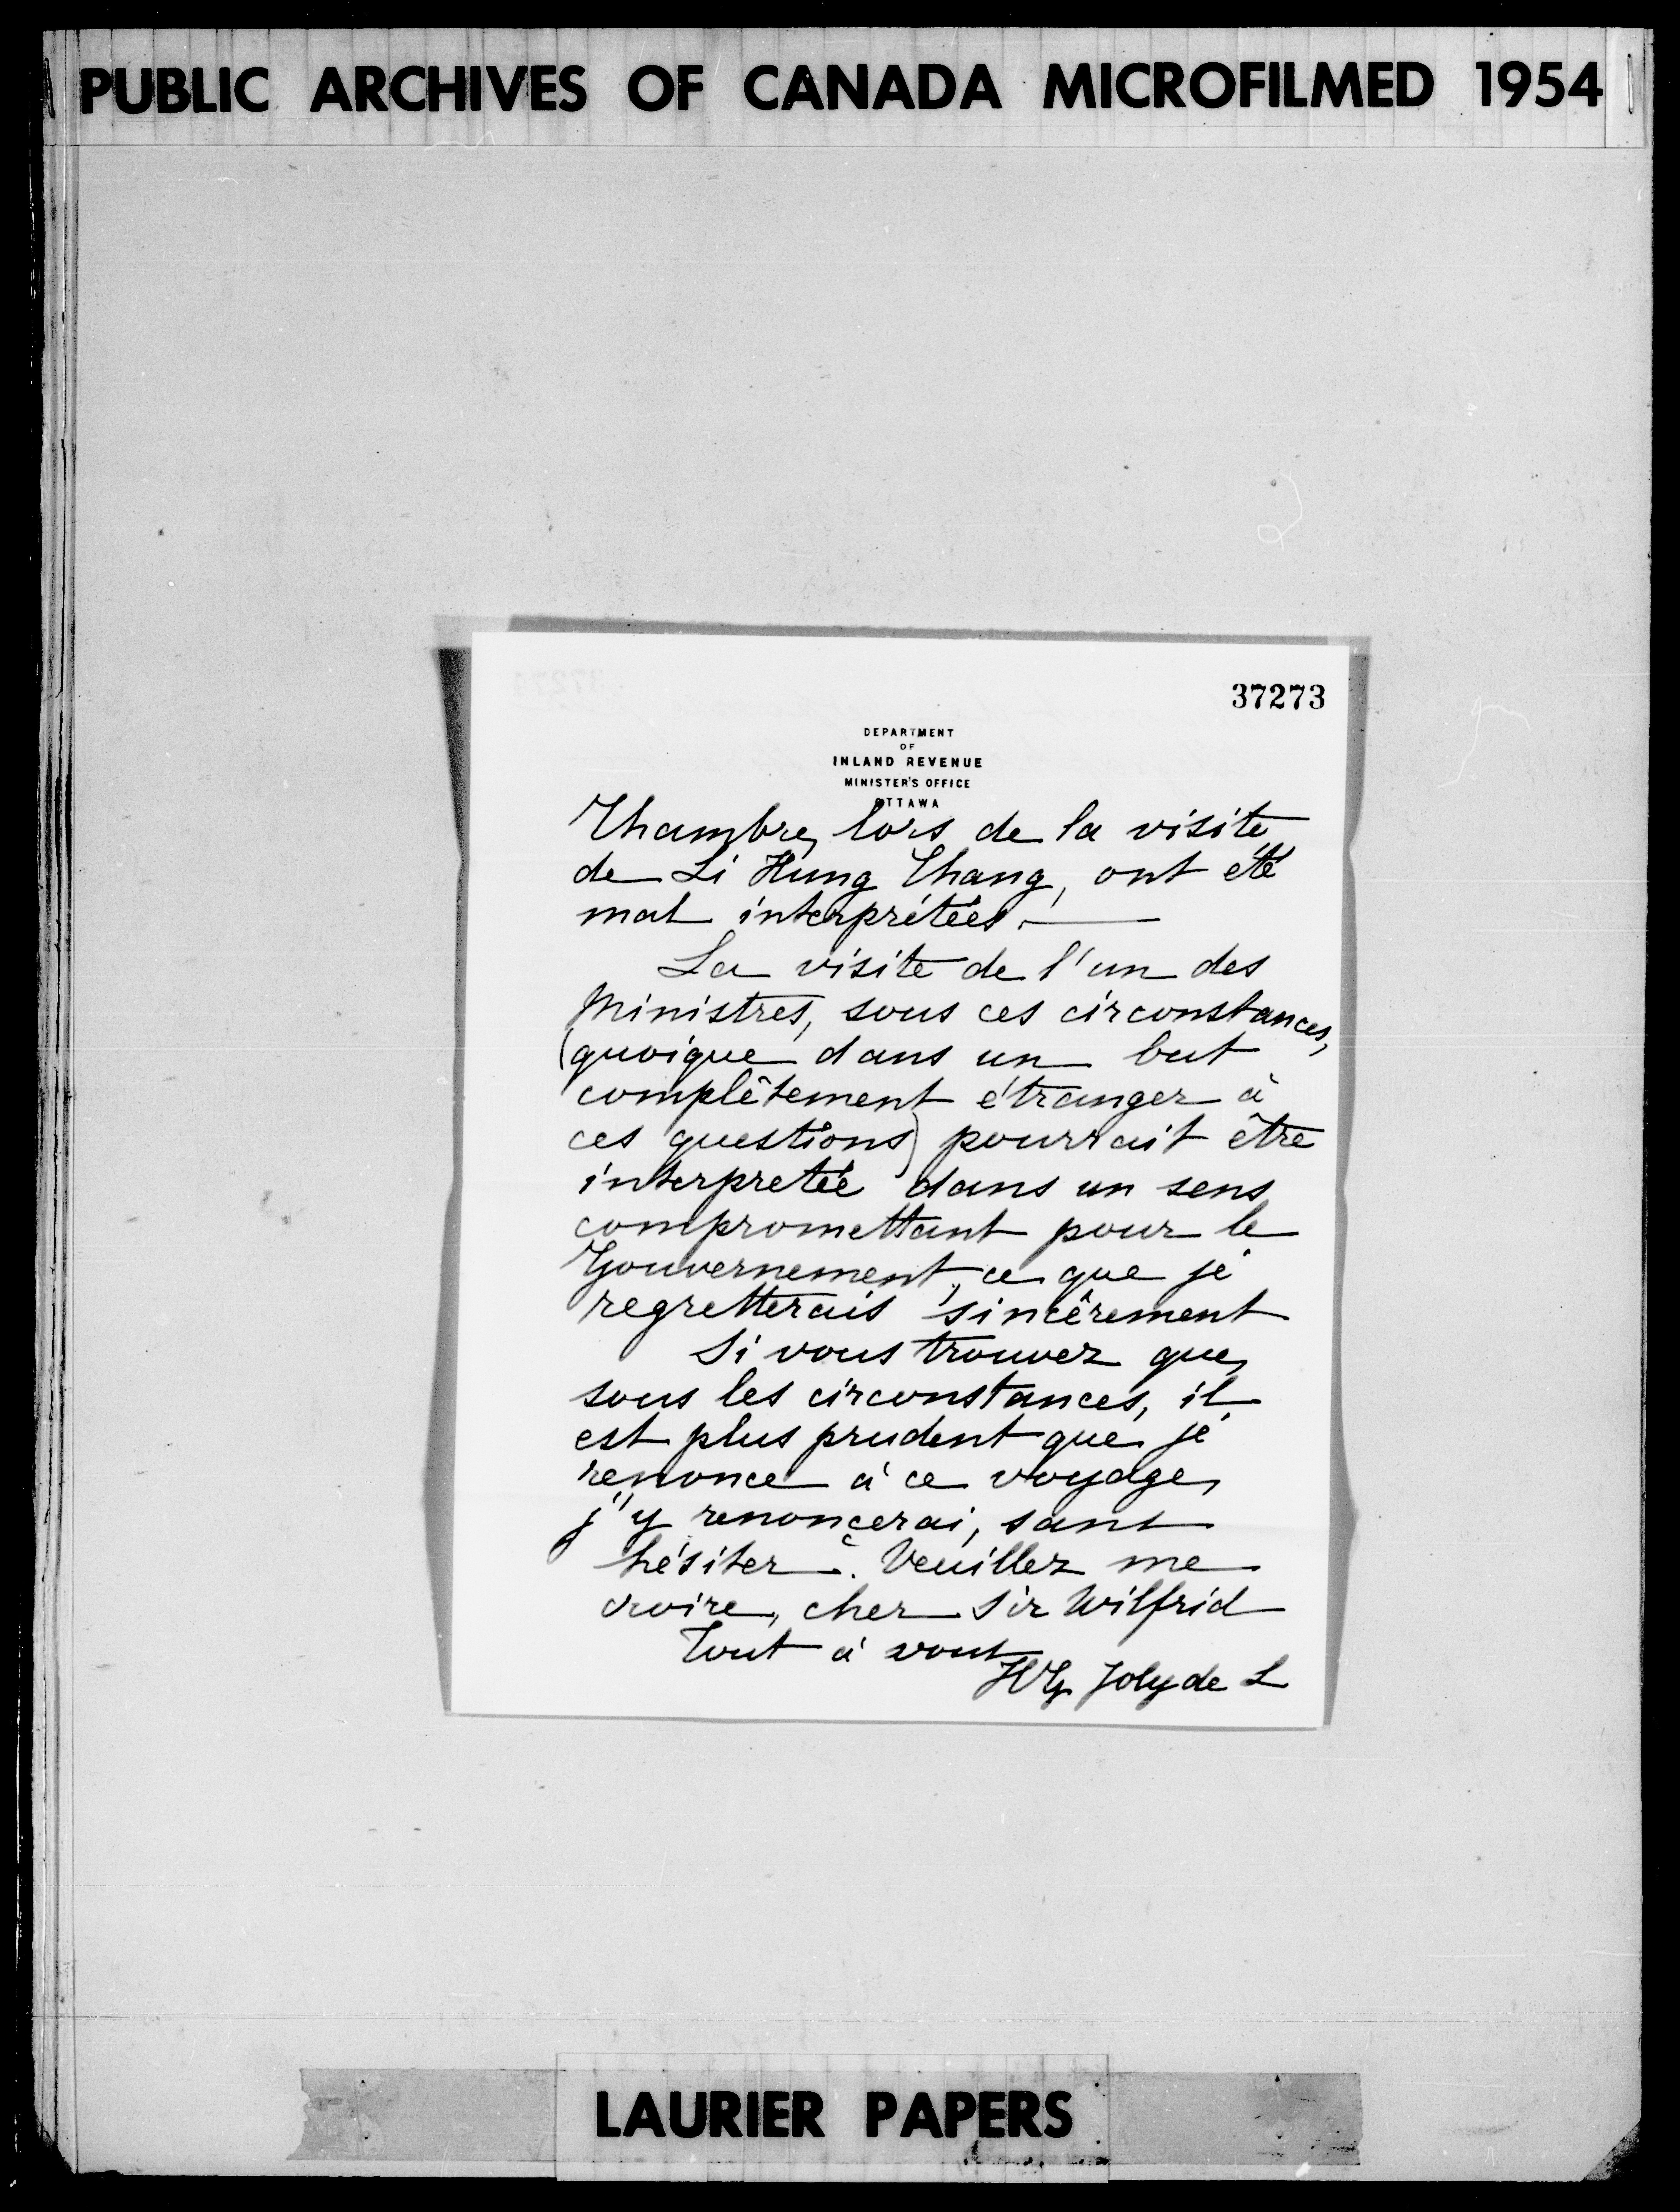 PUBLIC ARCHIVES OF CANADA MICROFILMED 1954
37273
DEPARTMENT
OF
INLAND REVENUE
MINISTER'S OFFICE
OTTAWA
Chambre, lors de la visite
de Li Hung Chang, ont été
mal interprétées.
La visite de l'un des
Ministres, sous ces circonstances,
(quoique dans un but
complètement étranger à
ces questions) pourrait être
interpretée dans un sens
compromettant pour le
Gouvernement, ce que je
regretterais sincèrement
Si vous trouvez que,
sous les circonstances, il
est plus prudent que je
renonce à ce voyage,
j'y renoncerai, sans
hésiter. Veuillez me
croire, cher Sir Wilfrid
Tout à vous
HG Joly de L
LAURIER PAPERS